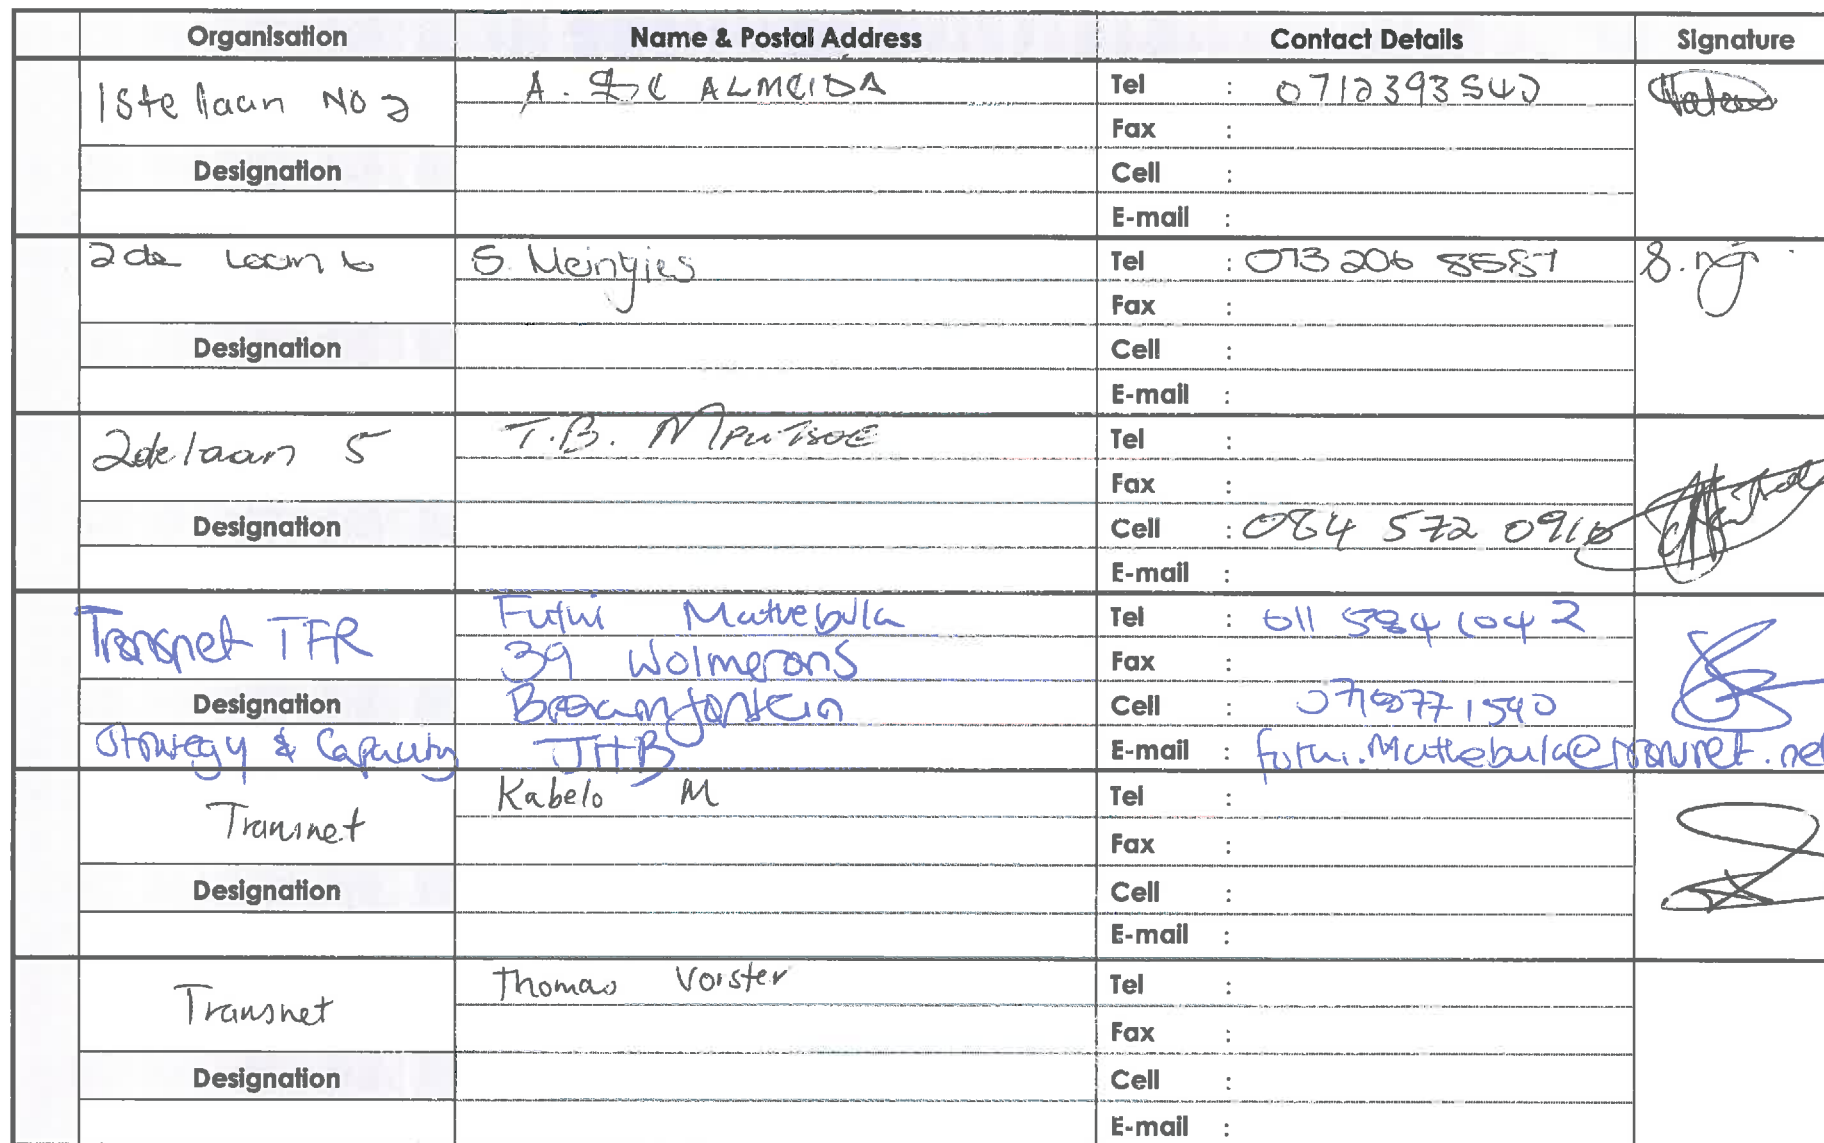 Organisation Name & Postal Address Contact Details Signature
1ste laan NO 2 A. DE ALMEIDA Tel : 0712393542
Fax :
Designation Cell :
E-mail :
2de Laan 6 S. Meintjies Tel : 073 206 8587
Fax :
Designation Cell :
E-mail :
2de laan 5 T.B. Mputsoe Tel :
Fax :
Designation Cell : 084 572 0916
E-mail :
Transnet TFR Futhi Mathebula Tel : 011 584 1042
39 Wolmarans Fax :
Designation Braamfontein Cell :
Strategy & Capacity JHB E-mail : futhi.Mathebula@transnet.net
Transnet Kabelo M Tel :
Fax :
Designation Cell :
E-mail :
Transnet Thomas Vorster Tel :
Fax :
Designation Cell :
E-mail :